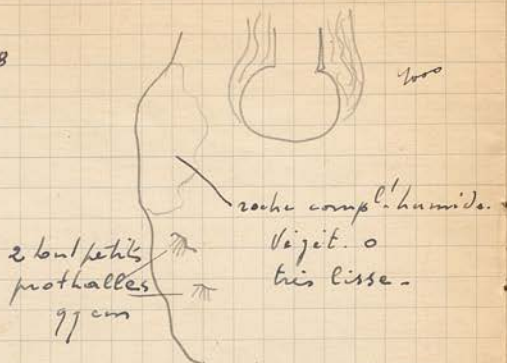 8
1000
roche compl.t humide.
Végét. 0
très lisse.
2 tout petits
prothalles
qq cm